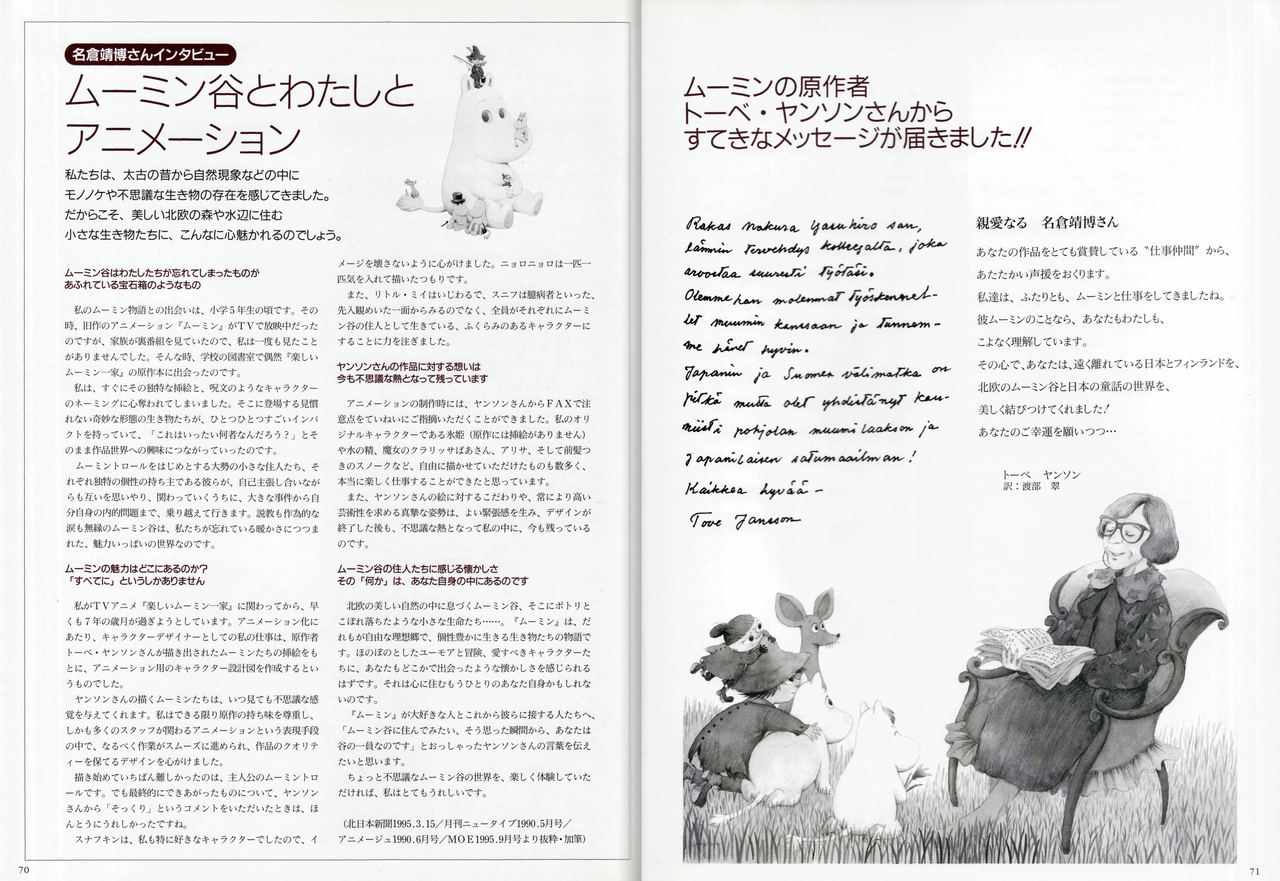 名倉靖博さんインタビュー
ムーミン谷とわたしと
アニメーション
私たちは、太古の昔から自然現象などの中に
モノノケや不思議な生き物の存在を感じてきました。
だからこそ、美しい北欧の森や水辺に住む
小さな生き物たちに、こんなに心魅かれるのでしょう。
ムーミン谷はわたしたちが忘れてしまったものが
あふれている宝石箱のようなもの
私のムーミン物語との出会いは、小学5年生の頃です。その
時、旧作のアニメーション『ムーミン』がTVで放映中だった
のですが、家族が裏番組を見ていたので、私は一度も見たこと
がありませんでした。そんな時、学校の図書室で偶然『楽しい
ムーミン一家』の原作本に出会ったのです。
私は、すぐにその独特な挿絵と、呪文のようなキャラクター
のネーミングに心奪われてしまいました。そこに登場する見慣
れない奇妙な形態の生き物たちが、ひとつひとつすごいインパ
クトを持っていて、「これはいったい何者なんだろう?」とそ
のまま作品世界への興味につながっていったのです。
ムーミントロールをはじめとする大勢の小さな住人たち、そ
れぞれ独特の個性の持ち主である彼らが、自己主張し合いなが
らも互いを思いやり、関わっていくうちに、大きな事件から自
分自身の内的問題まで、乗り越えて行きます。説教も作為的な
涙も無縁のムーミン谷は、私たちが忘れている暖かさにつつま
れた、魅力いっぱいの世界なのです。
ムーミンの魅力はどこにあるのか?
「すべてに」というしかありません
私がTVアニメ『楽しいムーミン一家』に関わってから、早
くも7年の歳月が過ぎようとしています。アニメーション化に
あたり、キャラクターデザイナーとしての私の仕事は、原作者
トーベ・ヤンソンさんが描き出されたムーミンたちの挿絵をも
とに、アニメーション用のキャラクター設計図を作成するとい
うものでした。
ヤンソンさんの描くムーミンたちは、いつ見ても不思議な感
覚を与えてくれます。私はできる限り原作の持ち味を尊重し、
しかも多くのスタッフが関わるアニメーションという表現手段
の中で、なるべく作業がスムーズに進められ、作品のクオリテ
ィーを保てるデザインを心がけました。
描き始めていちばん難しかったのは、主人公のムーミントロ
ールです。でも最終的にできあがったものについて、ヤンソン
さんから「そっくり」というコメントをいただいたときは、ほ
んとうにうれしかったですね。
スナフキンは、私も特に好きなキャラクターでしたので、イ
メージを壊さないように心がけました。ニョロニョロは一匹一
匹気を入れて描いたつもりです。
また、リトル・ミイはいじわるで、スニフは臆病者といった、
先入観めいた一面からみるのでなく、全員がそれぞれにムーミ
ン谷の住人として生きている、ふくらみのあるキャラクターに
することに力を注ぎました。
ヤンソンさんの作品に対する想いは
今も不思議な熱となって残っています
アニメーションの制作時には、ヤンソンさんからFAXで注
意点をていねいにご指摘いただくことができました。私のオリ
ジナルキャラクターである氷姫(原作には挿絵がありません)
や水の精、魔女のクラリッサばあさん、アリサ、そして前髪つ
きのスノークなど、自由に描かせていただけたものも数多く、
本当に楽しく仕事することができたと思っています。
また、ヤンソンさんの絵に対するこだわりや、常により高い
芸術性を求める真摯な姿勢は、よい緊張感を生み、デザインが
終了した後も、不思議な熱となって私の中に、今も残っている
のです。
ムーミン谷の住人たちに感じる懐かしさ
その「何か」は、あなた自身の中にあるのです
北欧の美しい自然の中に息づくムーミン谷、そこにポトリと
こぼれ落ちたような小さな生命たち……。『ムーミン』は、だ
れもが自由な理想郷で、個性豊かに生きる生き物たちの物語で
す。ほのぼのとしたユーモアと冒険、愛すべきキャラクターた
ちに、あなたもどこかで出会ったような懐かしさを感じられる
はずです。それは心に住むもうひとりのあなた自身かもしれな
いのです。
『ムーミン』が大好きな人とこれから彼らに接する人たちへ、
「ムーミン谷に住んでみたい、そう思った瞬間から、あなたは
谷の一員なのです」とおっしゃったヤンソンさんの言葉を伝え
たいと思います。
ちょっと不思議なムーミン谷の世界を、楽しく体験していた
だければ、私はとてもうれしいです。
(北日本新聞1995.3.15/月刊ニュータイプ1990.5月号/
アニメージュ1990.6月号/MOE1995.9月号より抜粋・加筆)
70
ムーミンの原作者
トーベ・ヤンソンさんから
すてきなメッセージが届きました!!
Rakas Nakura Yasuhiro san,
lämmin tervehdys kollegalta, joka
arvostaa suuresti työtäsi.
Olemmehan molemmat työskennel-
let muumin kanssaan ja tunnem-
me hänet hyvin.
Japanin ja Suomen välimatka on
pitkä mutta olet yhdistänyt kau-
niisti pohjolan muumilaakson ja
Japanilaisen satumaailman!
Kaikkea hyvää –
Tove Jansson
親愛なる 名倉靖博さん
あなたの作品をとても賞賛している“仕事仲間”から、
あたたかい声援をおくります。
私達は、ふたりとも、ムーミンと仕事をしてきましたね。
彼ムーミンのことなら、あなたもわたしも、
こよなく理解しています。
その心で、あなたは、遠く離れている日本とフィンランドを、
北欧のムーミン谷と日本の童話の世界を、
美しく結びつけてくれました!
あなたのご幸運を願いつつ…
トーベ ヤンソン
訳:渡部 翠
71